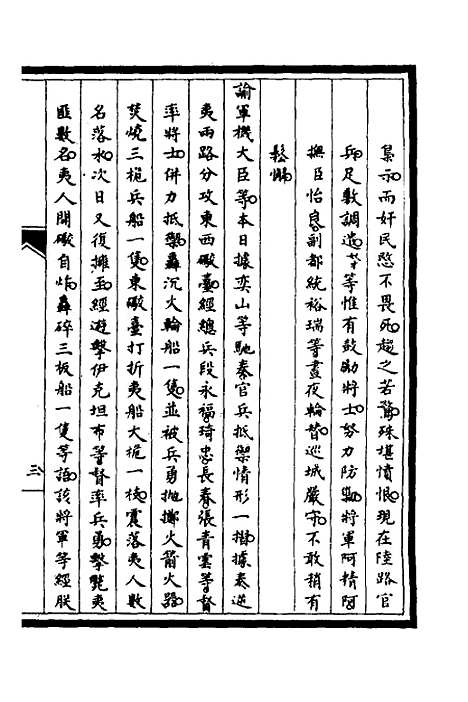 梟示而奸民愍不畏死趨之若鶩殊堪憤恨現在陸路官
兵足數調遣等惟有鼓勵將士努力防勦將軍阿精阿
撫臣怡良副都統裕瑞等晝夜輪替巡城嚴守不敢稍有
鬆懈
諭軍機大臣等本日據奕山等馳奏官兵抵禦情形一摺據奏逆
夷兩路分攻東西礮臺經總兵段永福琦忠長春張青雲等督
率將士併力抵禦轟沉火輪船一隻並被兵勇拋擲火箭火器
焚燒三桅兵船一隻東礮臺打折夷船大桅一枝震落夷人數
名落水次日又復擁至經遊擊伊克坦布等督率兵勇擊斃夷
匪數名夷人開礮自炸轟碎三板船一隻等語該將軍等經朕
三